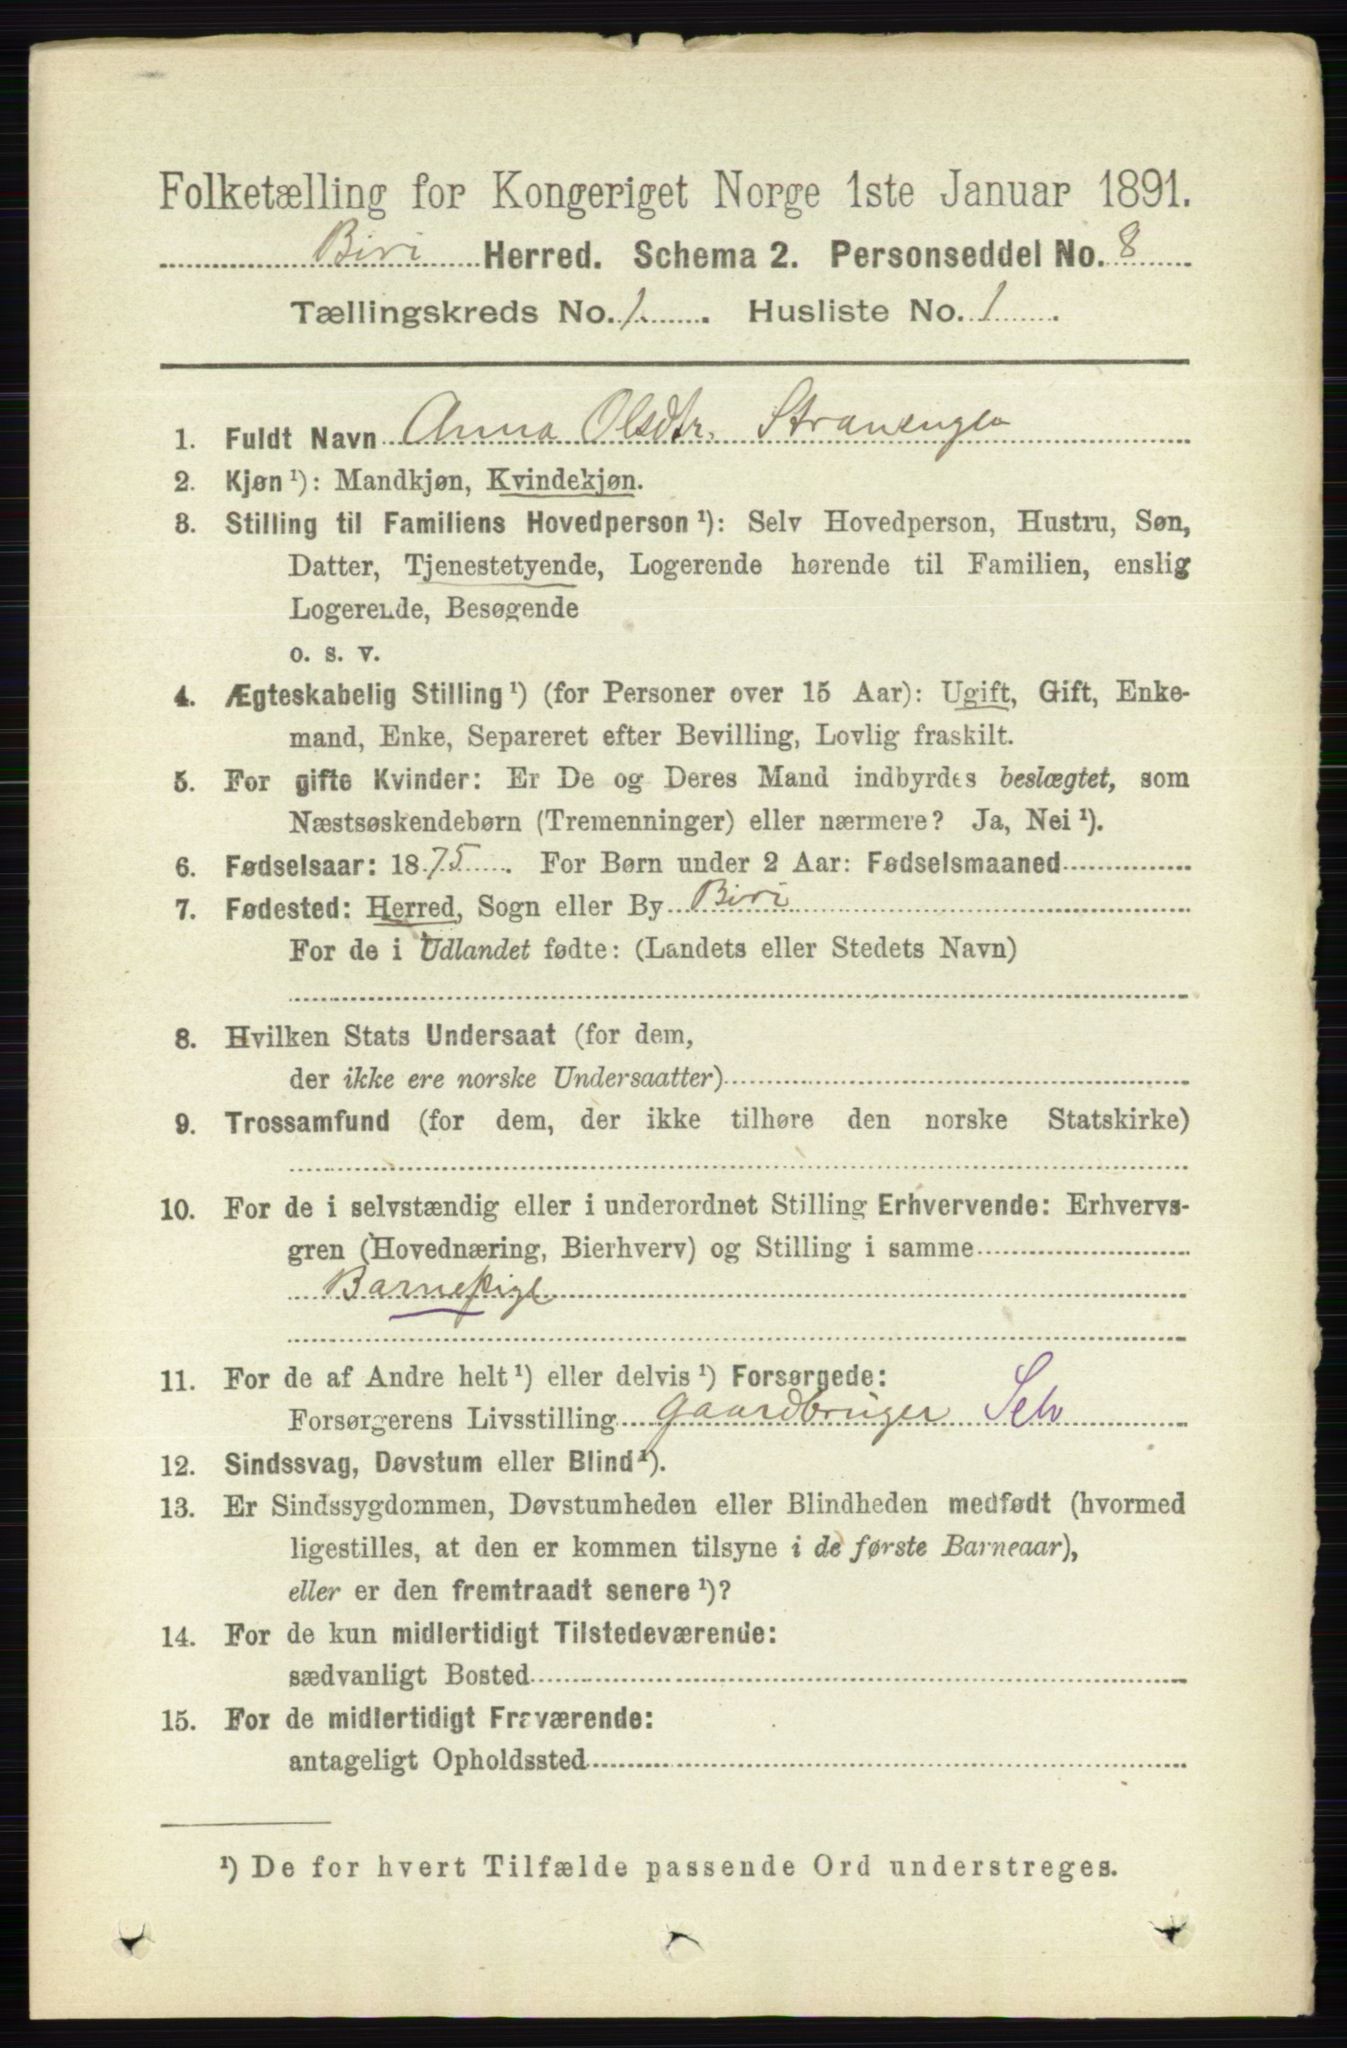 Folketælling for Kongeriget Norge 1ste Januar 1891.
Biri Herred. Schema 2. Personseddel No. 8
Tællingskreds No. 1. Husliste No. 1.
1. Fuldt Navn Anna Olsdtr. Stranengen
2. Kjøn ¹): Mandkjøn, Kvindekjøn.
3. Stilling til Familiens Hovedperson ¹): Selv Hovedperson, Hustru, Søn,
Datter, Tjenestetyende, Logerende hørende til Familien, enslig
Logerende, Besøgende
o. s. v.
4. Ægteskabelig Stilling ¹) (for Personer over 15 Aar): Ugift, Gift, Enke-
mand, Enke, Separeret efter Bevilling, Lovlig fraskilt.
5. For gifte Kvinder: Er De og Deres Mand indbyrdes beslægtet, som
Næstsøskendebørn (Tremenninger) eller nærmere? Ja, Nei ¹).
6. Fødselsaar: 1875. For Børn under 2 Aar: Fødselsmaaned
7. Fødested: Herred, Sogn eller By Biri
For de i Udlandet fødte: (Landets eller Stedets Navn)
8. Hvilken Stats Undersaat (for dem,
der ikke ere norske Undersaatter)
9. Trossamfund (for dem, der ikke tilhøre den norske Statskirke)
10. For de i selvstændig eller i underordnet Stilling Erhvervende: Erhvervs-
gren (Hovednæring, Bierhverv) og Stilling i samme
Barnepige
11. For de af Andre helt ¹) eller delvis ¹) Forsørgede:
Forsørgerens Livsstilling gaardbruger Selv
12. Sindssvag, Døvstum eller Blind ¹).
13. Er Sindssygdommen, Døvstumheden eller Blindheden medfødt (hvormed
ligestilles, at den er kommen tilsyne i de første Barneaar),
eller er den fremtraadt senere ¹)?
14. For de kun midlertidigt Tilstedeværende:
sædvanligt Bosted
15. For de midlertidigt Fraværende:
antageligt Opholdssted
¹) De for hvert Tilfælde passende Ord understreges.